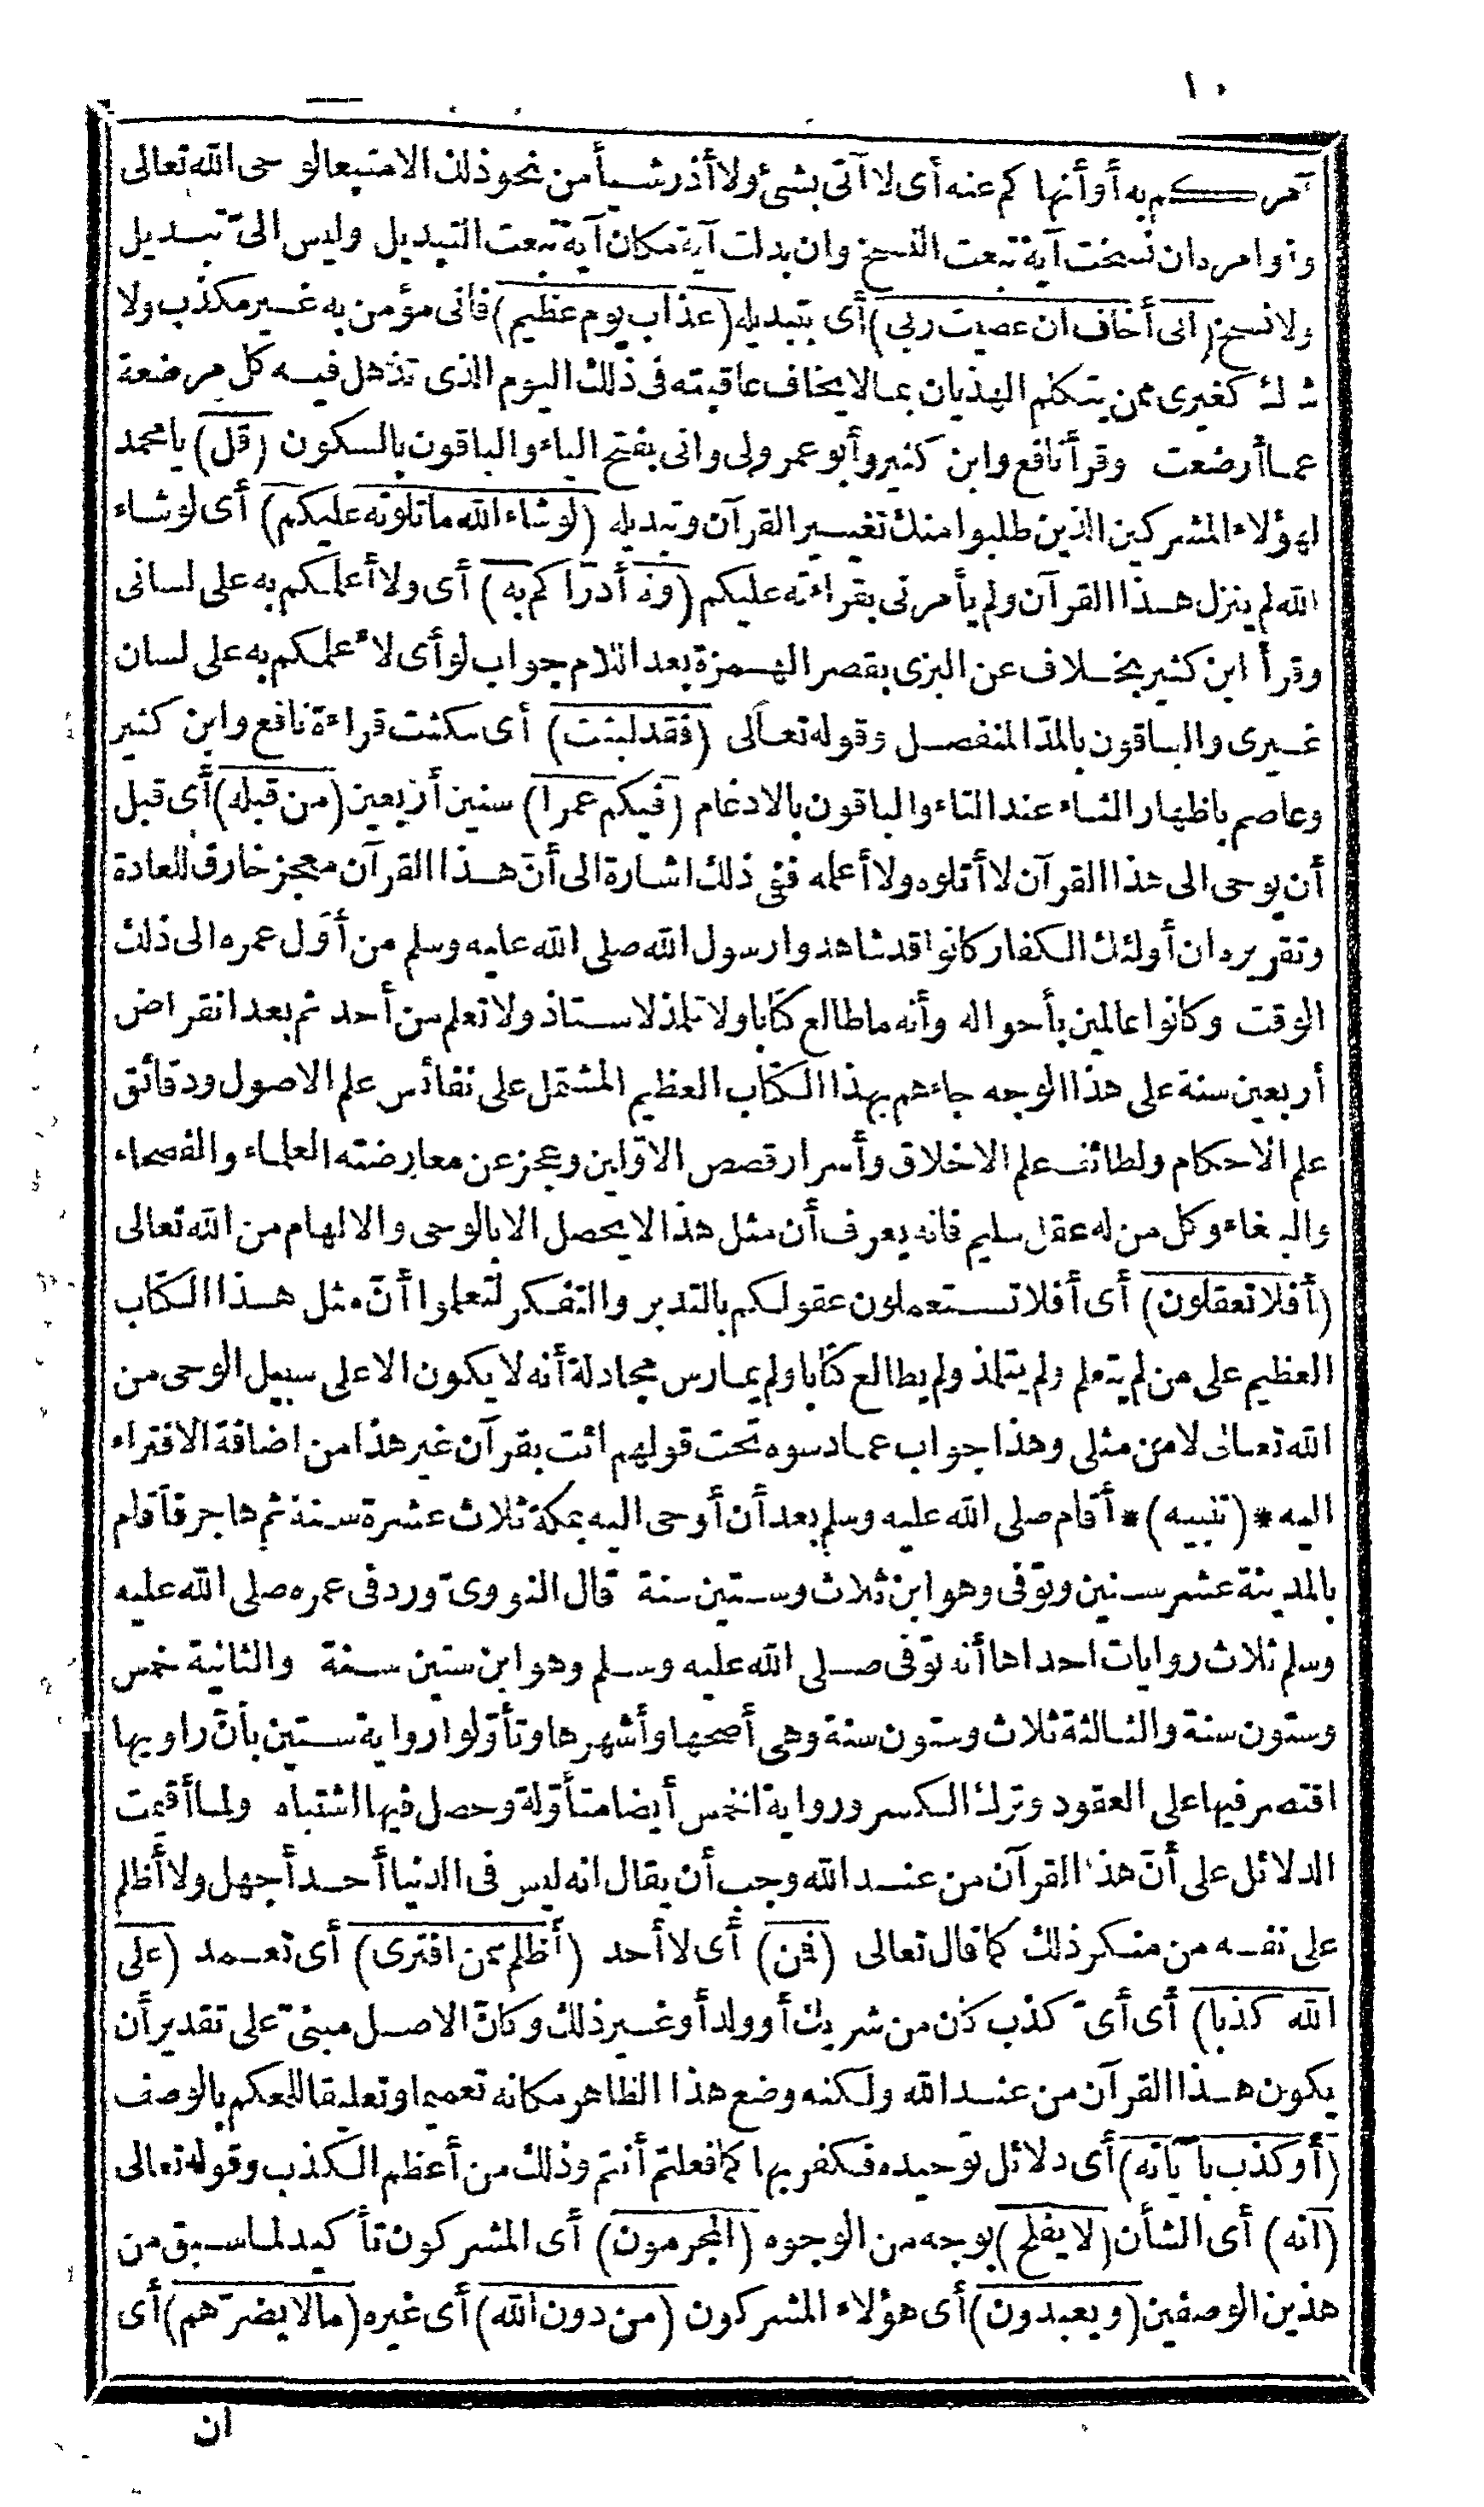 ١٠
آمركم به أو أنهاكم عنه أى لا آتى بشئ ولا أذر شيأ من نحو ذلك الا متبعا لوحى الله تعالى
وأوامره ان نسخت آية تبعت النسخ وان بدلت آية مكان آية تبعت التبديل وليس الىّ تبديل
ولا نسخ (انى أخاف ان عصيت ربى) أى بتبديله (عذاب يوم عظيم) فانى مؤمن به غير مكذب ولا
شاك كغيرى ممن يتكلم الهذيان بما لا يخاف عاقبته فى ذلك اليوم الذى تذهل فيه كل مرضعة
عما أرضعت وقرأ نافع وابن كثير وأبو عمرو لى وانى بفتح الياء والباقون بالسكون (قل) يا محمد
لهؤلاء المشركين الذين طلبوا منك تغيير القرآن وتبديله (لو شاء الله ما تلوته عليكم) أى لو شاء
الله لم ينزل هذا القرآن ولم يأمرنى بقراءته عليكم (ولا أدراكم به) أى ولا أعلمكم به على لسانى
وقرأ ابن كثير بخلاف عن البزى بقصر الهمزة بعد اللام جواب لو أى لأعلمكم به على لسان
غيرى والباقون بالمدّ المنفصل وقوله تعالى (فقد لبثت) أى مكثت قراءة نافع وابن كثير
وعاصم باظهار الثاء عند التاء والباقون بالادغام (فيكم عمرا) سنين أربعين (من قبله) أى قبل
أن يوحى الى هذا القرآن لا أتلوه ولا أعلمه ففى ذلك اشارة الى أنّ هذا القرآن معجز خارق للعادة
وتقريره ان أولئك الكفار كانوا قد شاهدوا رسول الله صلى الله عليه وسلم من أوّل عمره الى ذلك
الوقت وكانوا عالمين بأحواله وأنه ما طالع كتابا ولا تلمذ لاستاذ ولا تعلم من أحد ثم بعد انقراض
أربعين سنة على هذا الوجه جاءهم بهذا الكتاب العظيم المشتمل على نفائس علم الاصول ودقائق
علم الاحكام ولطائف علم الاخلاق وأسرار قصص الاوّلين وعجز عن معارضته العلماء والفصحاء
والبلغاء وكل من له عقل سليم فانه يعرف أن مثل هذا لا يحصل الا بالوحى والالهام من الله تعالى
(أفلا تعقلون) أى أفلا تستعملون عقولكم بالتدبر والتفكر لتعلموا أنّ مثل هذا الكتاب
العظيم على من لم يتعلم ولم يتلمذ ولم يطالع كتابا ولم يمارس مجادلة أنه لا يكون الا على سبيل الوحى من
الله تعالى لا من مثلى وهذا جواب عما دسوه تحت قولهم ائت بقرآن غير هذا من اضافة الافتراء
اليه * (تنبيه) * أقام صلى الله عليه وسلم بعد أن أوحى اليه بمكة ثلاث عشرة سنة ثم هاجر فأقام
بالمدينة عشر سنين وتوفى وهو ابن ثلاث وستين سنة قال النووىّ ورد فى عمره صلى الله عليه
وسلم ثلاث روايات احداها أنه توفى صلى الله عليه وسلم وهو ابن ستين سنة والثانية خمس
وستون سنة والثالثة ثلاث وستون سنة وهى أصحها وأشهرها وتأوّلوا رواية ستين بأنّ راويها
اقتصر فيها على العقود وترك الكسر ورواية الخمس أيضا متأوّلة وحصل فيها اشتباه ولما أقيمت
الدلائل على أنّ هذا القرآن من عند الله وجب أن يقال انه ليس فى الدنيا أحد أجهل ولا أظلم
على نفسه من منكر ذلك كما قال تعالى (فمن) أى لا أحد (أظلم ممن افترى) أى تعمد (على
الله كذبا) أى أىّ كذب كان من شريك أو ولد أو غير ذلك وكانّ الاصل مبنىّ على تقدير أن
يكون هذا القرآن من عند الله ولكنه وضع هذا الظاهر مكانه تعميما وتعليقا للحكم بالوصف
(أو كذب بآياته) أى دلائل توحيده فكفر بها كما فعلتم أنتم وذلك من أعظم الكذب وقوله تعالى
(انه) أى الشأن (لا يفلح) بوجه من الوجوه (المجرمون) أى المشركون تأكيد لما سبق من
هذين الوصفين (ويعبدون) أى هؤلاء المشركون (من دون الله) أى غيره (ما لا يضرّهم) أى
ان